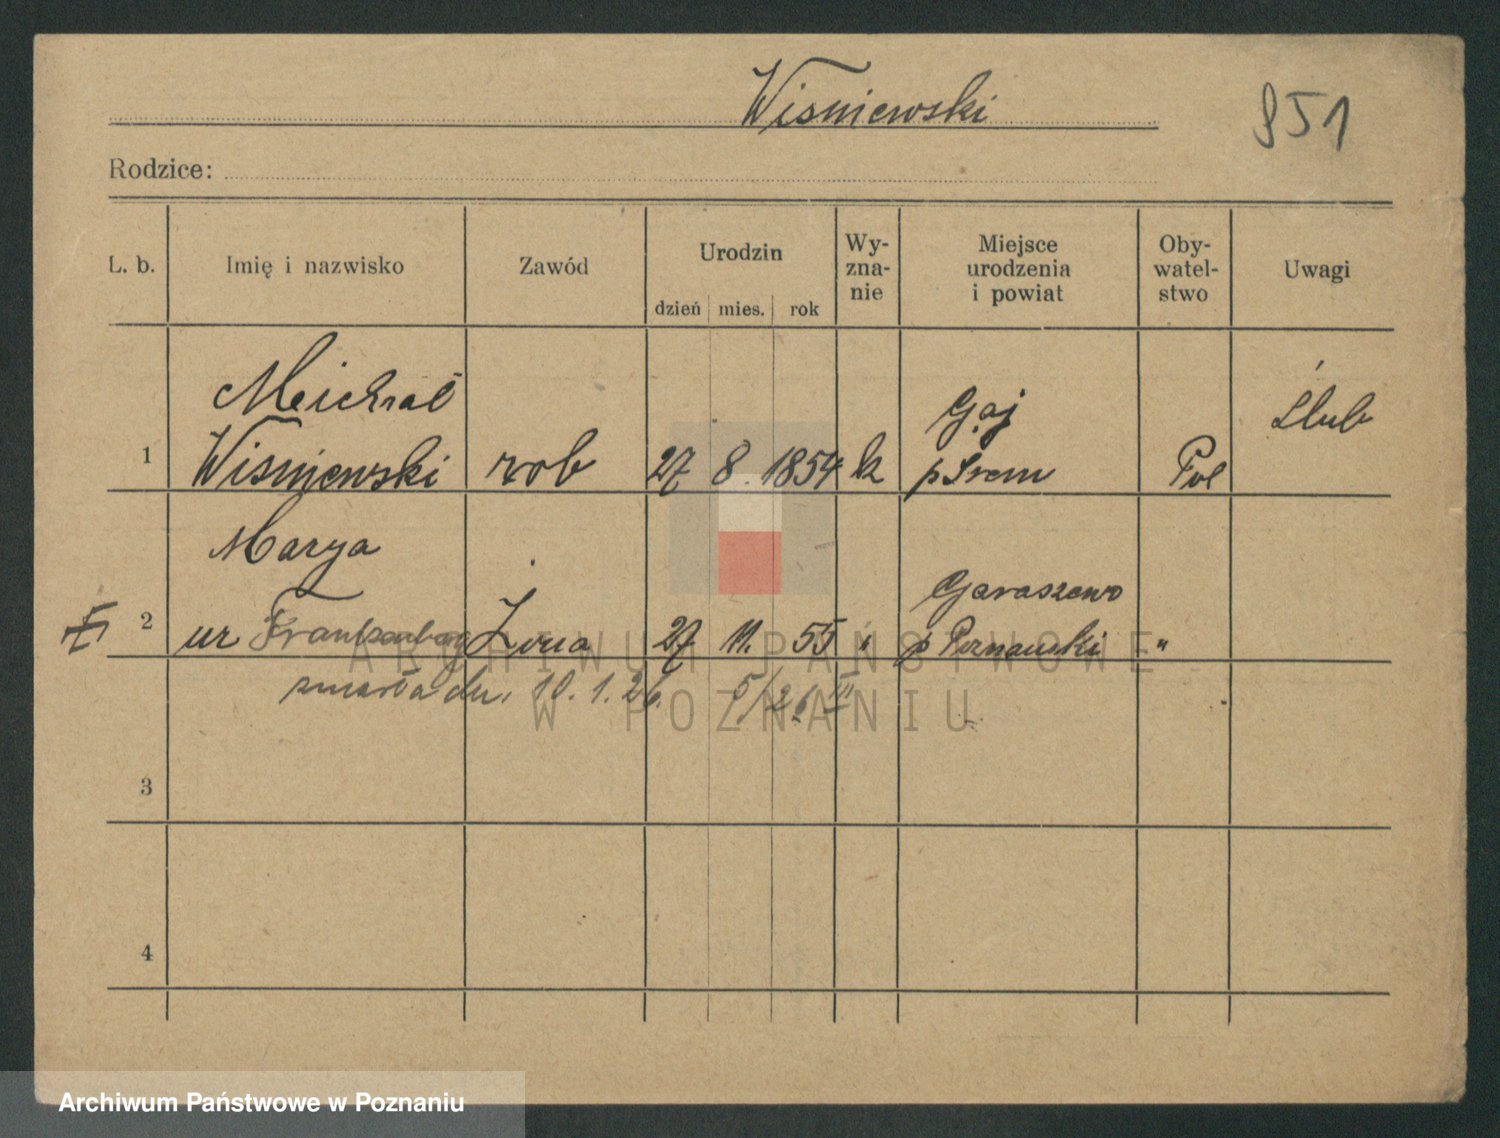 Wisniewski
851
Rodzice:
L. b. Imię i nazwisko Zawód Urodzin Wy-zna-nie Miejsce urodzenia i powiat Oby-watel-stwo Uwagi
dzień mies. rok
Meichał Gaj Ślub
1 Wisniewski rob 27 8. 1854 k p Srem Pol
Marya Garaszewo
2 ur Frankenberg Żona 27 11. 55 " p Poznanski "
zmarła dn. 10. 1. 26. 5/26 III
3
4
ARCHIWUM PAŃSTWOWE
W POZNANIU
Archiwum Państwowe w Poznaniu